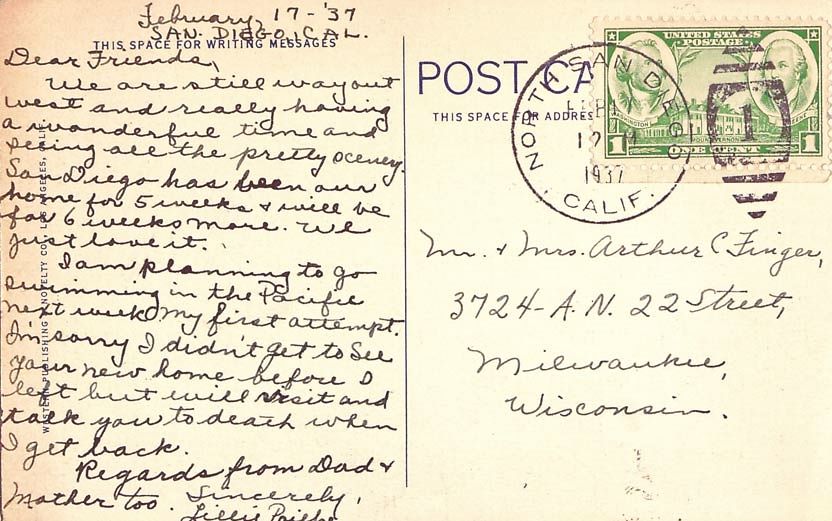 February, 17-'37
SAN. DIEGO, CAL.
THIS SPACE FOR WRITING MESSAGES
Dear Friends,
We are still way out
west and really having
a wonderful time and
seeing all the pretty scenery.
San Diego has been our
home for 5 weeks & will be
for 6 weeks more. We
just love it.
I am planning to go
swimming in the Pacific
next week. My first attempt.
I'm sorry I didn't get to see
your new home before I
left but will visit and
talk you to death when
I get back.
Regards from Dad &
Mother too. Sincerely,
Lillie
WESTERN PUBLISHING & NOVELTY CO., LOS ANGELES, CALIF.
POST CA
THIS SPACE FOR ADDRES
NORTH SAN DIEGO
FEB 17
1937
CALIF.
UNITED STATES
POSTAGE
WASHINGTON
MOUNT VERNON
1 ONE CENT 1
1
Mr. & Mrs. Arthur C. Finger,
3724-A. N. 22 Street,
Milwaukee,
Wisconsin.